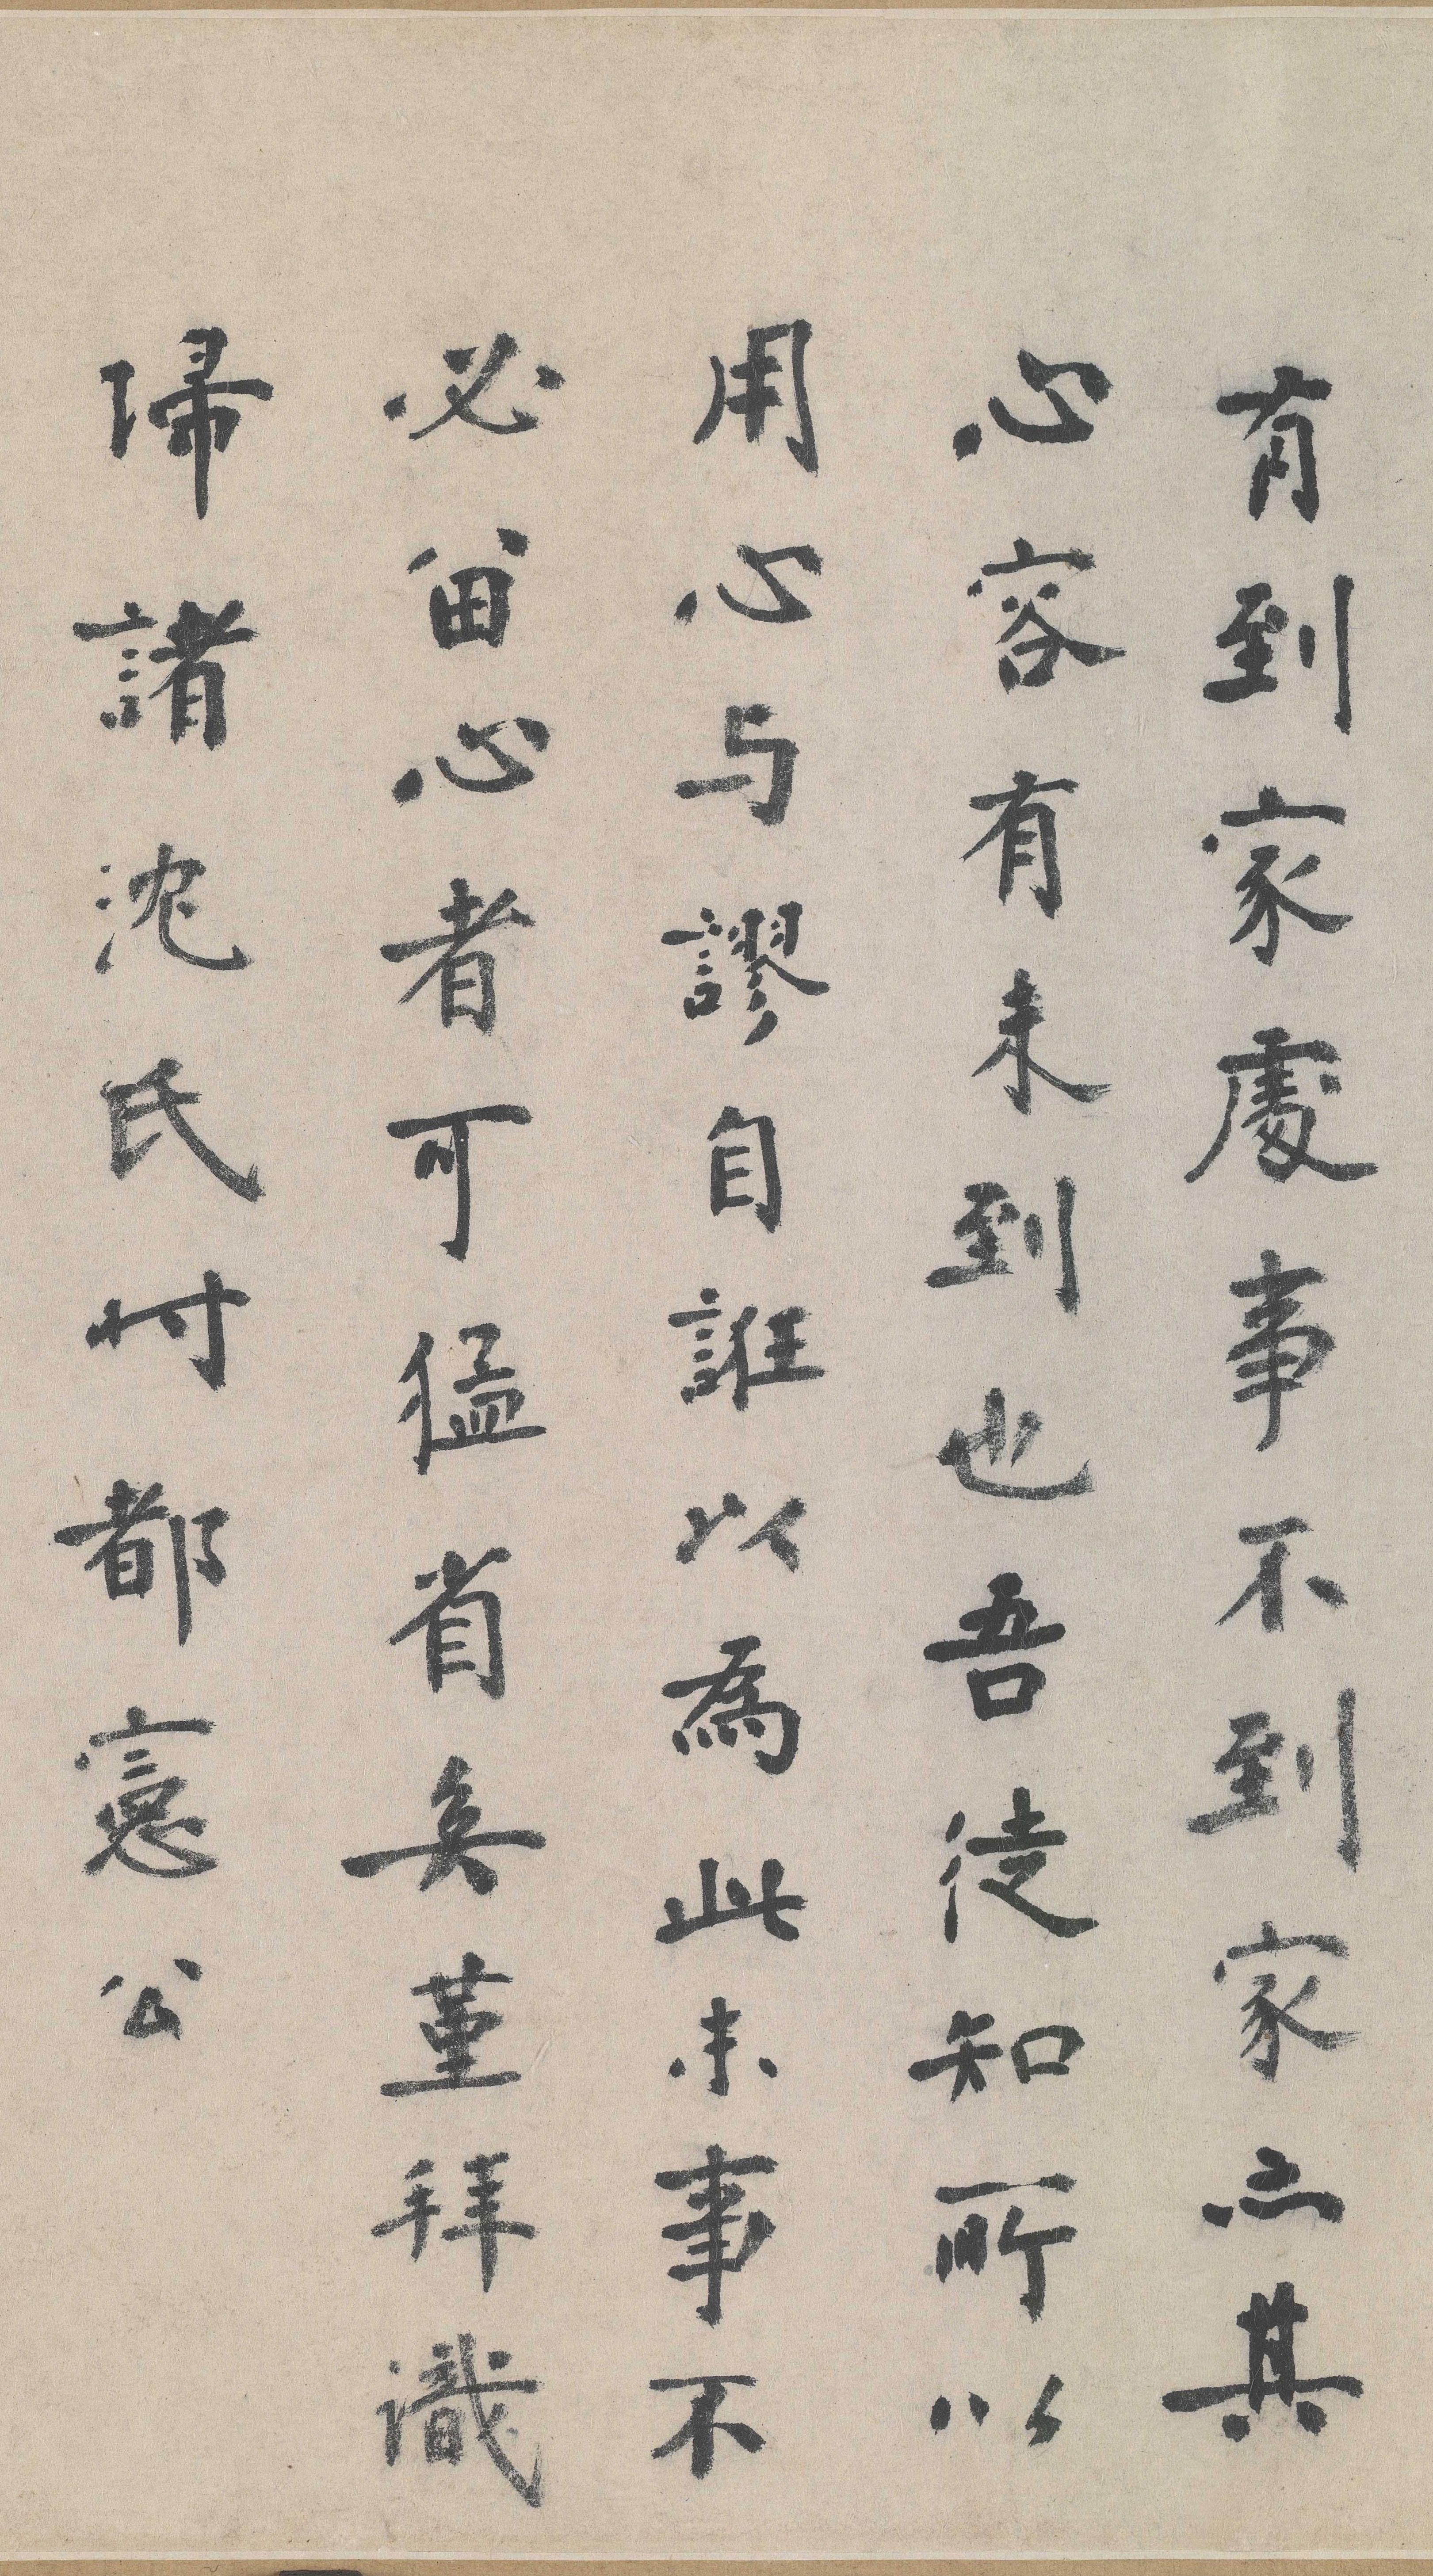 有到家處事不到家亦其
心容有未到也吾徒知所以
用心与謬自誑以為此末事不
必留心者可猛省矣堇拜識
歸諸沈氏時都憲公